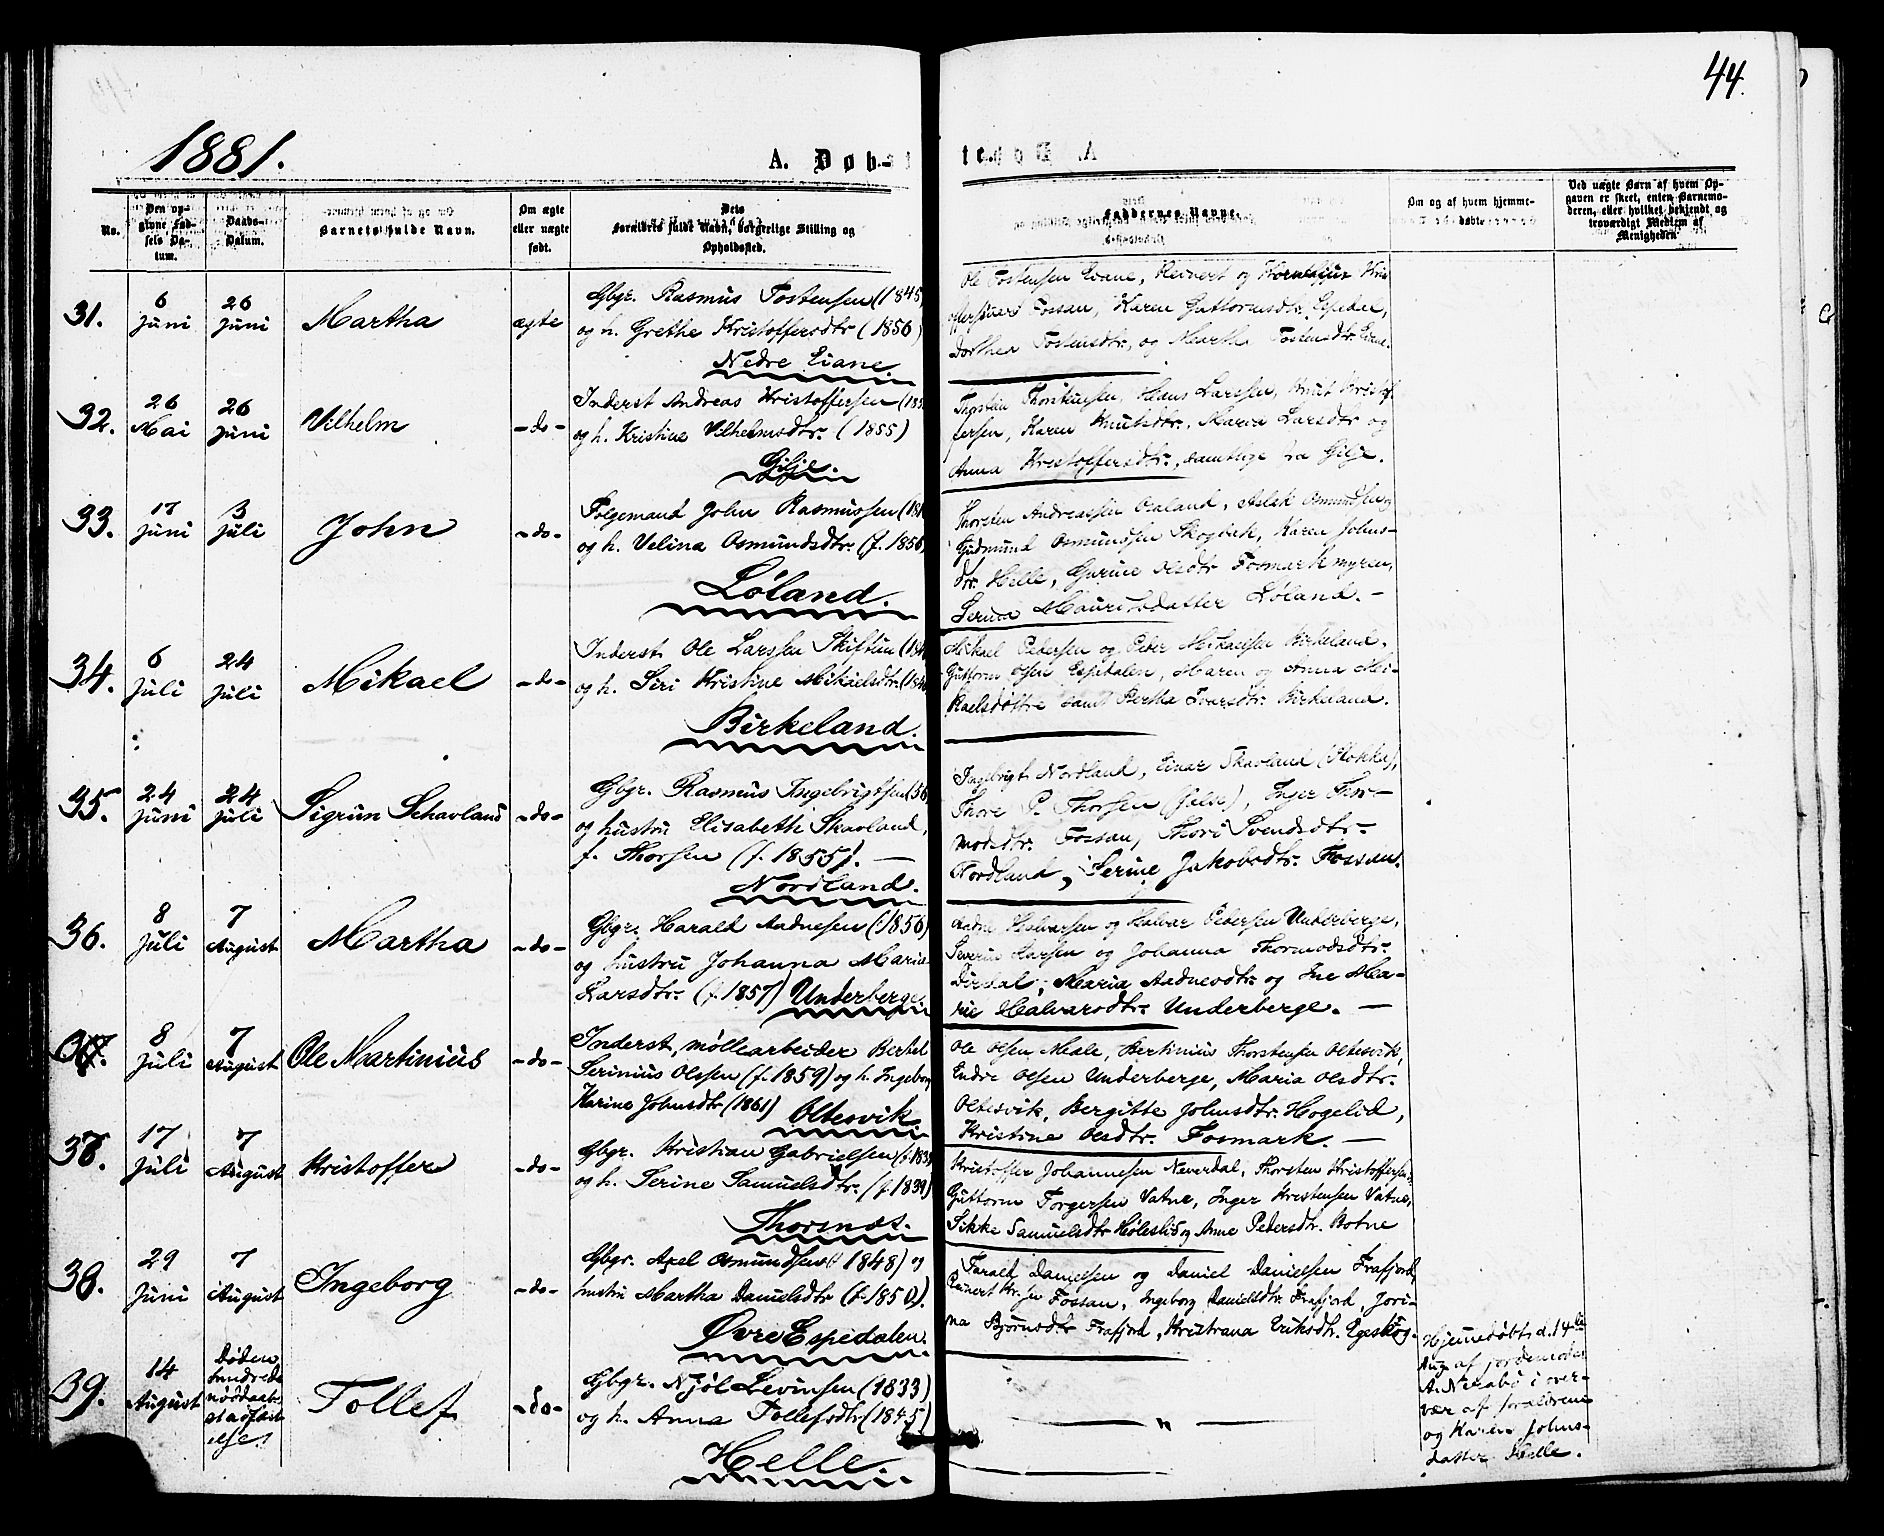 44.
1881.
A. Døb-
te.
No.
Den op-
givne Fød-
sels Da-
tum.
Daabs-
Datum.
Barnets fulde Navn.
Om ægte
eller uægte
født.
Dets
Forældres fulde Navn, borgerlige Stilling og
Opholdssted.
Faddernes Navne.
Om og af hvem hjemme-
døbt.
Ved uægte Børn af hvem Op-
gaven er skeet, enten Barnemo-
deren, eller hvilket bekjendt og
troværdigt Medlem af
Menigheden
31.
6
Juni
26
Juni
Martha
ægte
Gbgr. Rasmus Tostensen (1845)
og h. Grethe Kristoffersdtr (1856)
Nedre Eiane.
Ole Tostensen Eiane, Reinert og
Fossan, Karen Guttormsdtr. Espedal,
Dorthea Tostensdtr, og Martha Tostensdtr. Eiane.
32.
26
Mai
26
Juni
Vilhelm
-do-
Inderst Andreas Kristoffersen
og h. Kristine Vilhelmsdtr. (1855)
Gilje.
Thorstein Thorstensen, Hans Larssen, Knut Kristof-
fersen, Karen Knutsdtr., Maria Larsdtr og
Anna Kristoffersdtr., samtlige fra Gilje.
33.
17
Juni
3
Juli
John
-do-
Følgemand John Rasmussen
og h. Velina Osmundsdtr. (f. 1856)
Løland.
Thorsten Andreassen Oaland, Aslak Osmundsen og
Gudmund Osmundsen Skogbak, Karen Johns-
dtr. Helle, Gurine Olsdtr Fosmarkmyren,
Serina Mauritsdatter Løland. -
34.
6
Juli
24
Juli
Mikael
-do-
Inderst Ole Larssen Skiftun
og h. Siri Kristine Mikaelsdtr.
Birkeland.
Mikael Pedersen og Peder Mikaelsen Birkeland,
Guttorm Olsen Espedalen, Maren og Anna Mi-
kaelsdøttre samt Bertha Ivarsdtr. Birkeland.
35.
24
Juni
24
Juli
Sigrun Schavland
-do-
Gbgr. Rasmus Ingebrigtsen (56)
og hustru Elisabeth Skavland,
f. Thorsen (f. 1855). —
Nordland.
Ingebrigt Nordland, Einar Skavland (Klokker),
Thore P. Thorsen (Selve), Inger Thor-
modsdtr. Fossan, Thori Svendsdtr.
Nordland, Serine Jakobsdtr. Fossan.
36.
8
Juli
7
August
Martha
-do-
Gbgr. Harald Aadnesen (1856)
og hustru Johanna Maria
Larsdtr. (f. 1857) Underberge.
Aadne Halvarsen og Halvar Pedersen Underberge,
Severin Larsen og Johanna Thormodsdtr.
Dirdal, Maria Aadnesdtr. og Ine Ma-
rie Halvarsdtr. Underberge. —
37.
8
Juli
7
August
Ole Martinius
-do-
Inderst, møllearbeider Bertel
Serinius Olssen (f. 1859) og h. Ingeborg
Karine Johnsdtr (1861) Oltesvik.
Ole Olsen Meale, Bertinius Thorstensen Oltesvik,
Endre Olsen Underberge, Maria Olsdtr.
Oltesvik, Bergitte Johnsdtr. Hogelid,
Kristine Olsdtr. Fosmark. —
38.
17
Juli
7
August
Kristoffer
-do-
Gbgr. Kristian Gabrielsen
og h. Serine Samuelsdtr. (f. 1839)
Thorsnes.
Kristoffer Johannesen Neverdal, Thorsten Kristoffersen,
Guttorm Torgersen Vatne, Inger Kristensen Vatne,
Sikke Samuelsdtr Høleslid og Anne Pedersdtr. Botne
38.
29
Juni
7
August
Ingeborg
-do-
Gbgr. Axel Osmundsen (f 1848) og
hustru Martha Danielsdtr (f. 1850).
Øvre Espedalen.
Tarald Danielsen og Daniel Danielsen Frafjord,
Reinert Kr.sen Fossan, Ingeborg Danielsdtr. Frafjord, Jori-
na Bjørnsdtr Frafjord, Kristiana Eriksdtr. Egeskog.
39.
14
August
Døden
hindrede
nøddaabs
stadfæst
else.
Tollef
-do-
Gbgr. Njøl Levinsen (1833)
og h. Anna Tollefsdtr (1845)
Helle.
— " —
Hjemmedøbt d. 14de
Aug. af jordemoder
A. Nesabø i over-
vær af forældrene
og Karen Johns-
datter Helle.